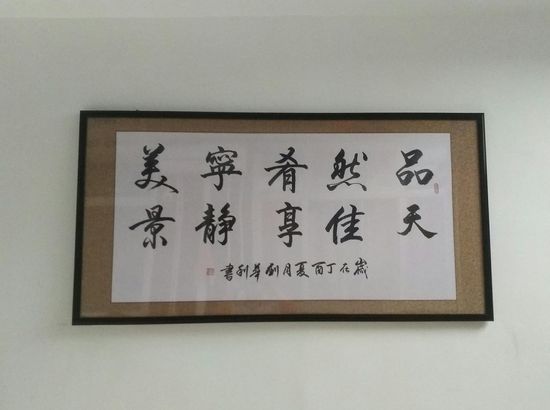 品天
然佳
肴享
寧静
美景
歲在丁酉夏月劉華利書